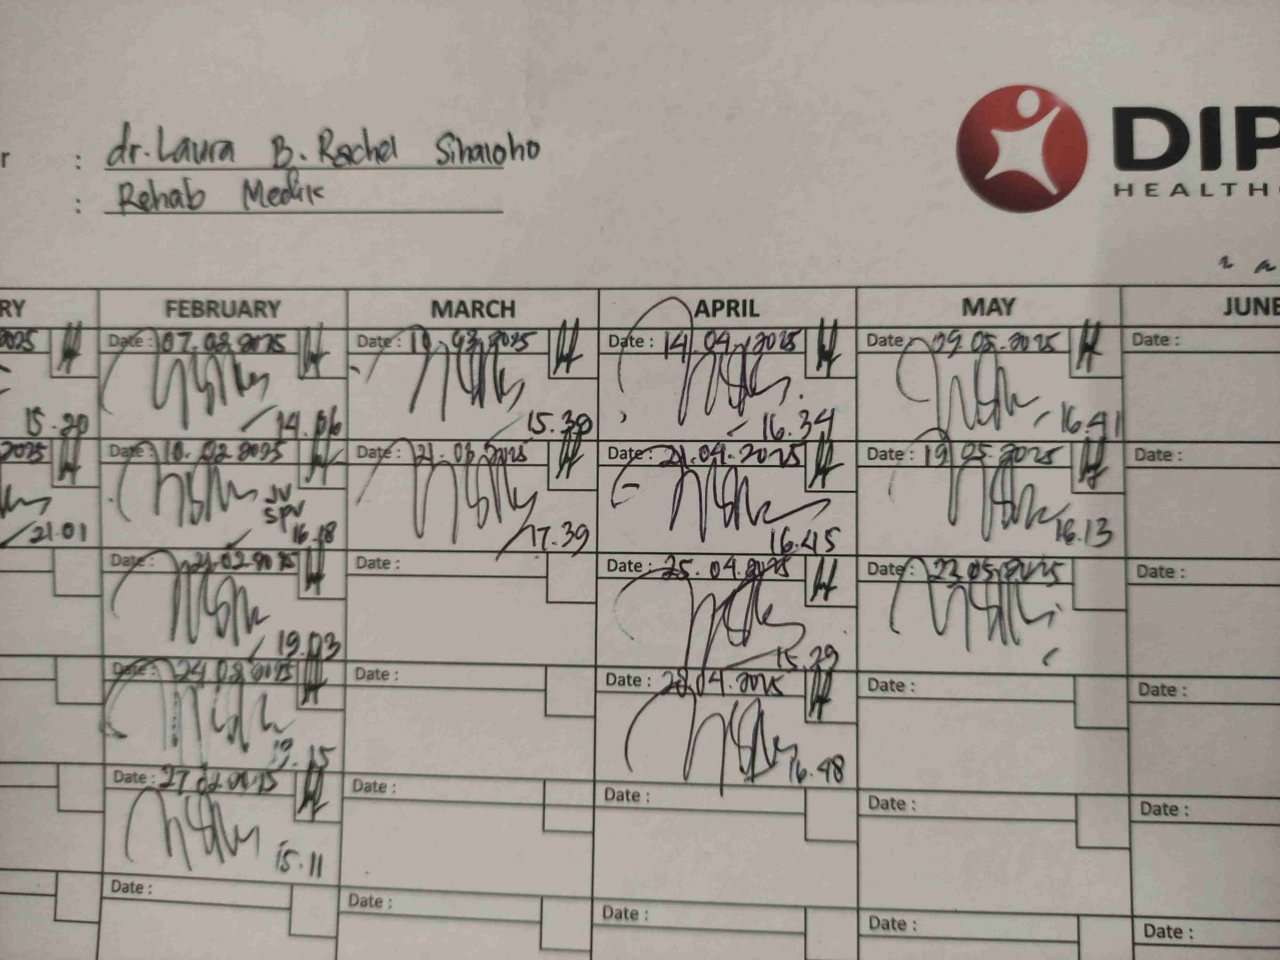 r : dr. Laura B. Rachel Sihaloho
: Rehab Medik
DIP
HEALTH
RY FEBRUARY MARCH APRIL MAY JUNE
2025 Date : 07.02.2025 Date : 10.03.2025 Date : 14.04.2025 Date 09.05.2025 Date :
15.20 14.06 15.39 16.34 16.41
2025 Date : 10.02.2025 Date : 21.03.2025 Date : 21.04.2025 Date : 19.05.2025 Date :
JV
SPV
21.01 16.18 17.39 16.45 16.13
Date : 21.02.2025 Date : Date : 25.04.2025 Date : 23.05.2025 Date :
19.03 15.29
Date : 24.02.2025 Date : Date : 28.04.2025 Date : Date :
19.15 16.48
Date : 27.02.2025 Date : Date : Date : Date :
15.11
Date : Date : Date : Date : Date :